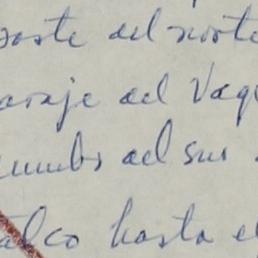 oste del norte
araje del Vaq
rumbo del sur
alco hasta el